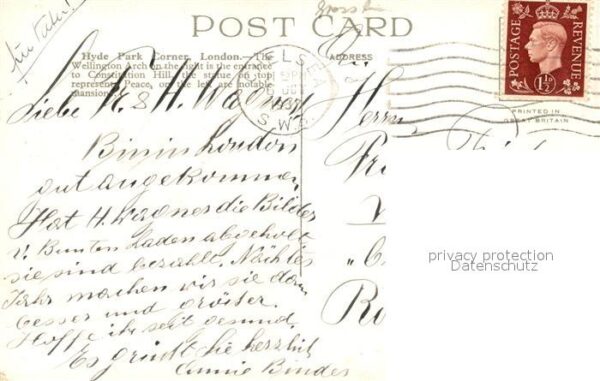 POST CARD
Hyde Park Corner, London.—The
Wellington Arch on the right is the entrance
to Constitution Hill, the statue on top
represents Peace, on the left are notable
mansions.
ADDRESS
POSTAGE
REVENUE
1½D
PRINTED IN
GREAT BRITAIN
CHELSEA
S.W.3
Liebe K. & H. Wagner
Bin in London
gut angekommen,
Hat H. Wagner die Bilder
v. Bunten Laden abgeholt
sie sind bezahlt. Nächstes
Jahr machen wir sie dann
besser und größer.
Hoffe ihr seit gesund.
Es grüßt Sie herzlich
Annie Bindes
Herrn
privacy protection
Datenschutz